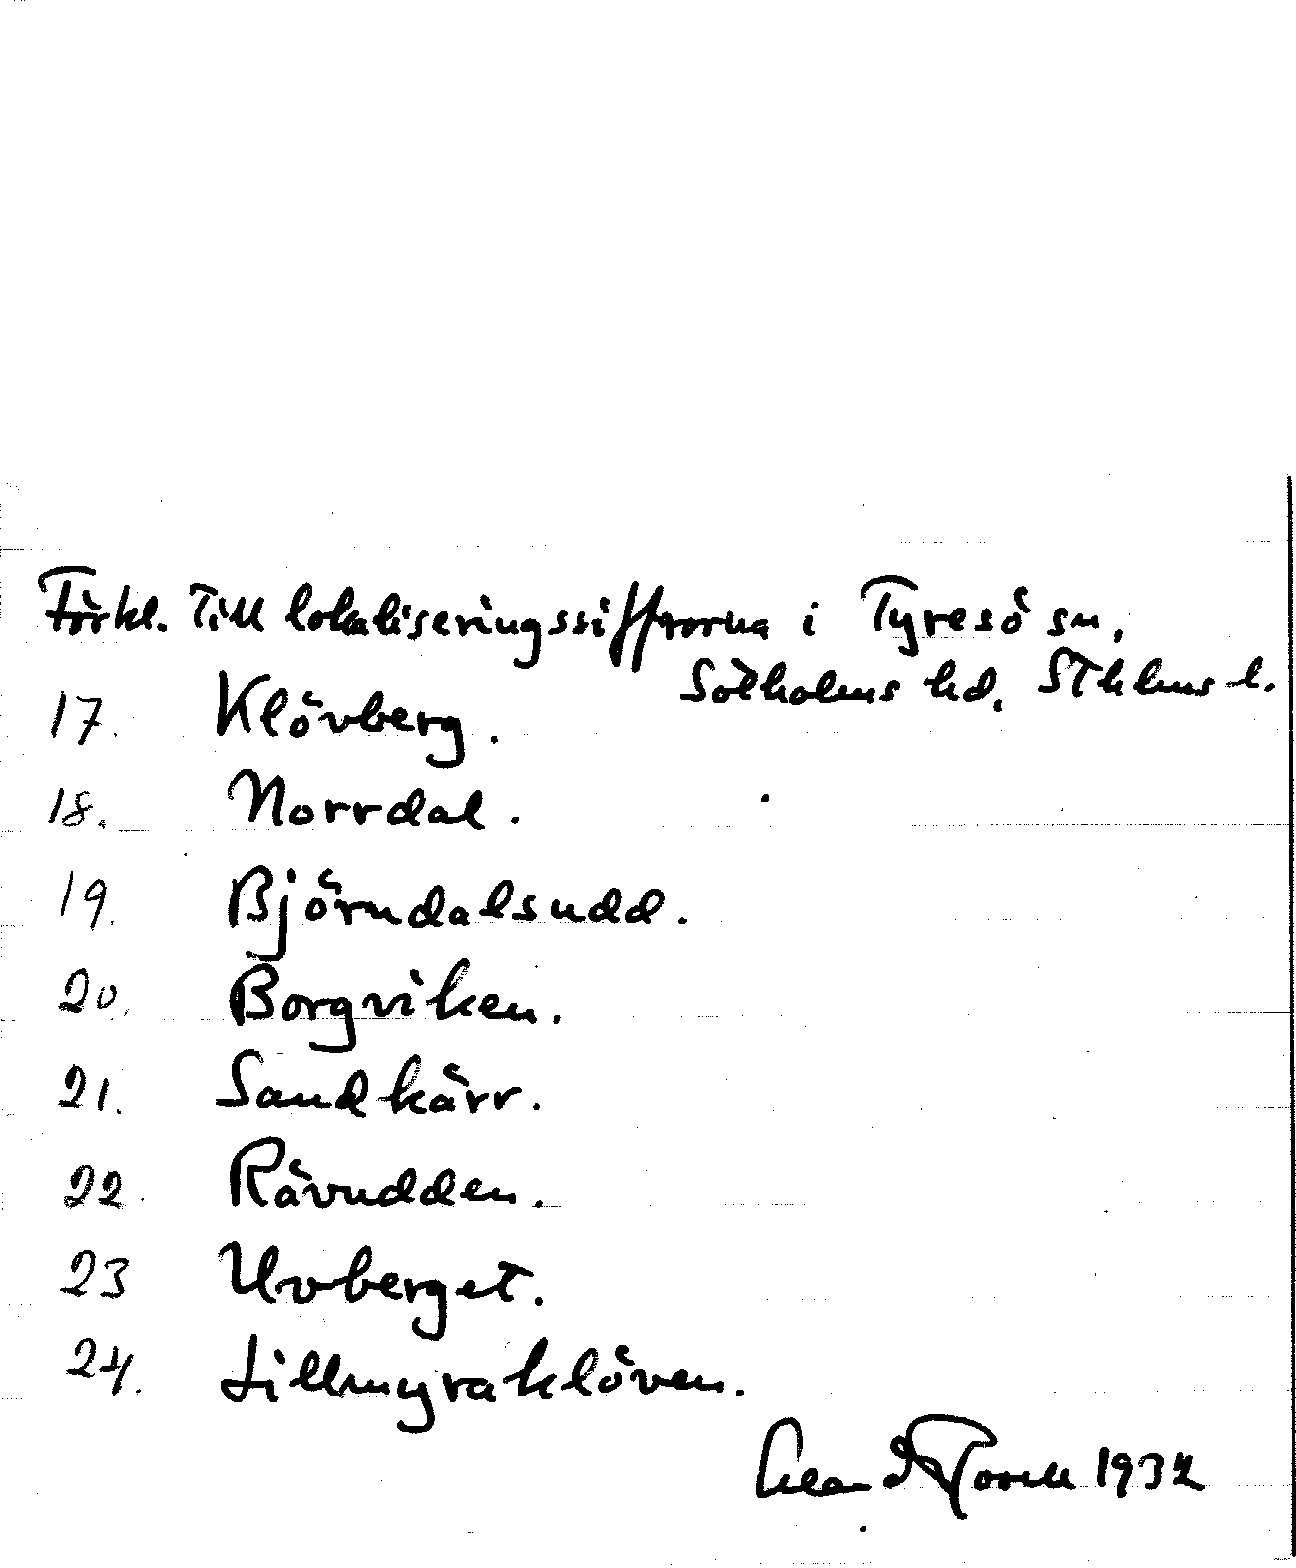 Förkl. till lokaliseringssiffrorna i Tyresö sn,
Sotholms hd, Sthlms l.
17. Klövberg.
18. Norrdal.
19. Björndalsudd.
20. Borgviken.
21. Sandkärr.
22. Rävudden.
23 Uvberget.
24. Lillmyraklöven.
1932